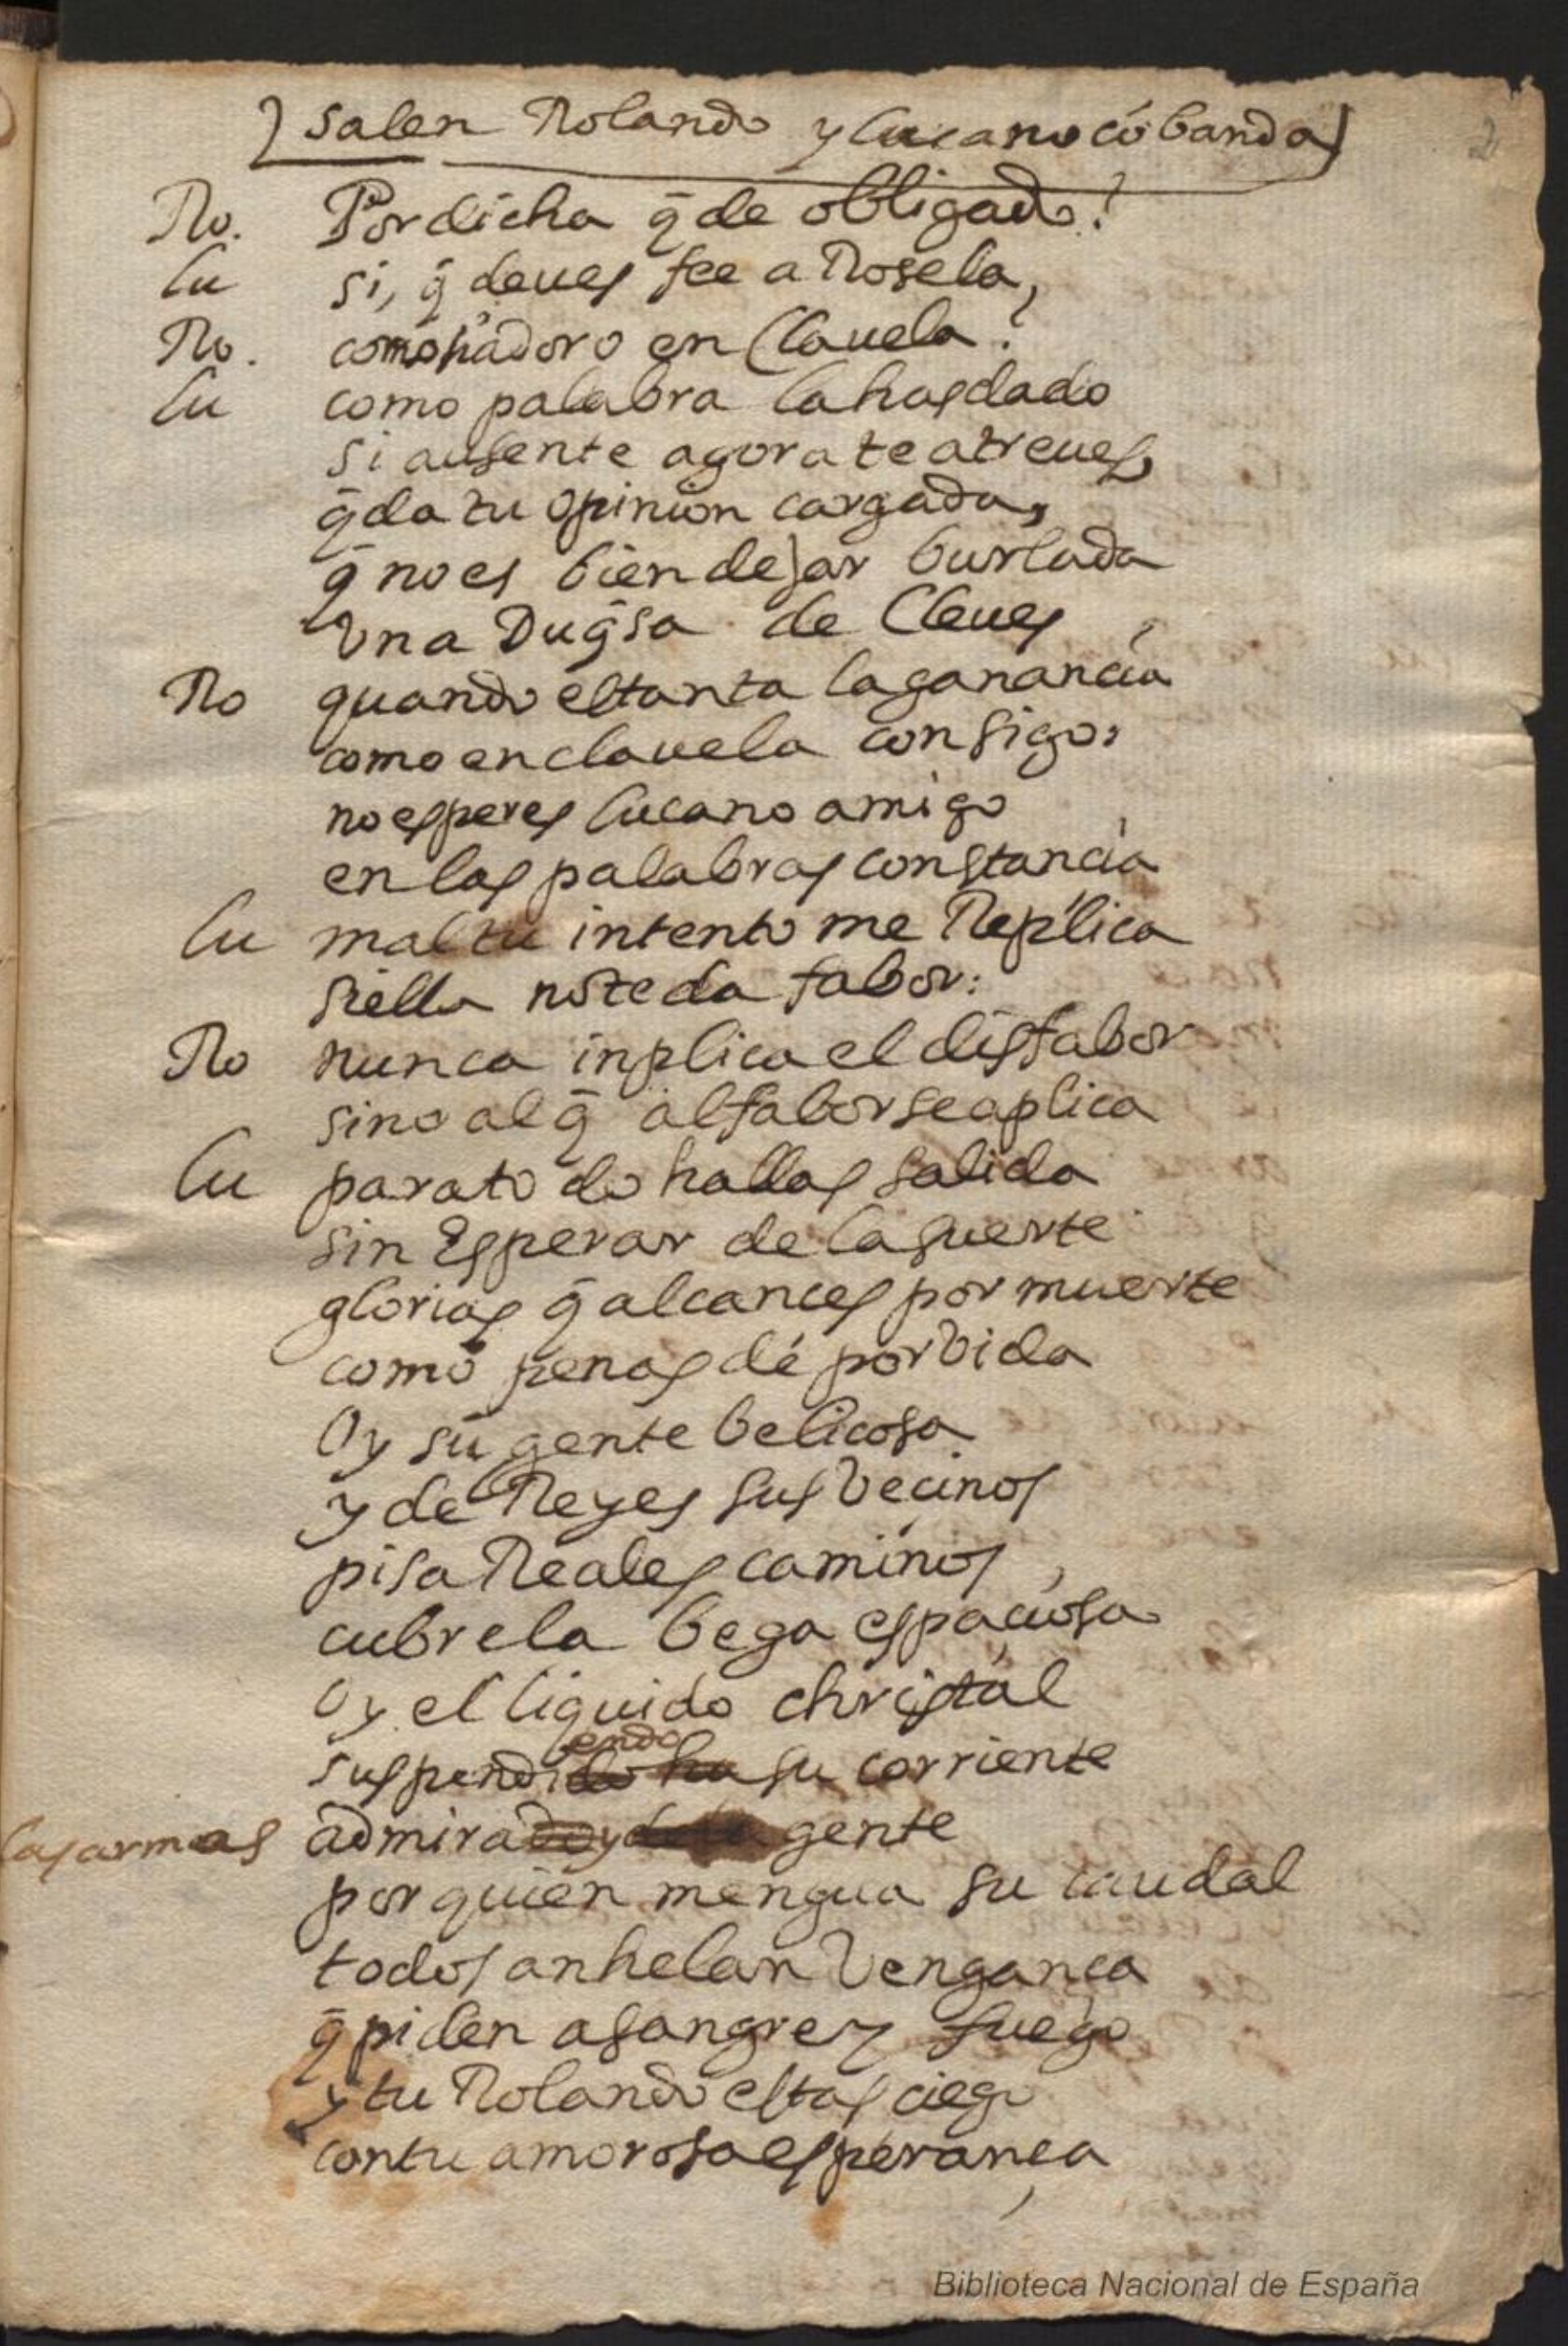 Salen Rolando y lucano có bandas
2
Ro. Por dicha q̄de obligado?
lu si, q̄ deues fee a Rosela,
Ro. como si adoro en Clauela?
lu como palabra la has dado
si ausente agora te atreues,
q̄da tu opinion cargada,
q̄ no es bien dejar burlada
Vna Duq̄sa de Cleues
Ro quando es tanta la ganancia
como en clauela consigo:
no esperes lucano amigo
en las palabras constancia
lu mal tu intento me Replica
si ella no te da fabor:
Ro nunca inplica el disfabor
sino al q̄ al fabor se aplica
lu para todo hallas salida
sin Esperar de la suerte
glorias q̄ alcances por muerte
como penas dé por Vida
Oy su gente belicosa
y de Reyes sus Vecinos
pisa Reales caminos,
cubre la bega espaciosa
Oy el liquido christal
endo
suspendido ha su corriente
las armas admirado y de la gente
por quien mengua su caudal
todos anhelan Vengança
q̄ piden a sangre y fuego
y tu Rolando estas ciego
con tu amorosa esperança
Biblioteca Nacional de España